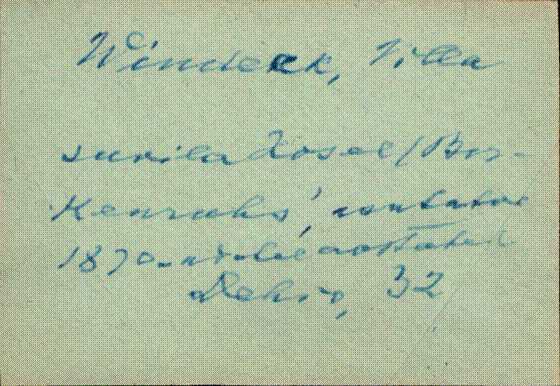 Windeck, Villa
suvila Kosel/Bir-
kenruhs', asutatud
1870-ndate aastatel
Dehio, 32